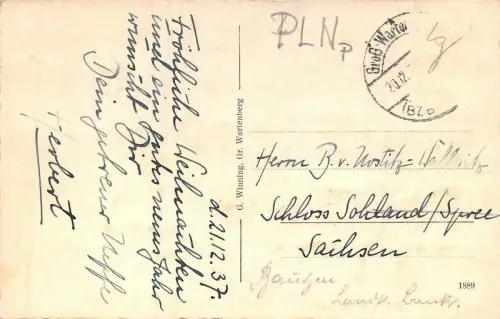 d. 21.12.37.
Fröhliche Weihnachten
und ein gutes neues Jahr
wünscht Dir
Dein getreuer Neffe
Herbert
G. Winning, Gr. Wartenberg
PLNp
Groß-Warten
20.12.
(Bz.
Herrn B. v. Nostitz-Wallwitz
Schloss Sohland/Spree
Sachsen
Bautzen
Landk.
1889